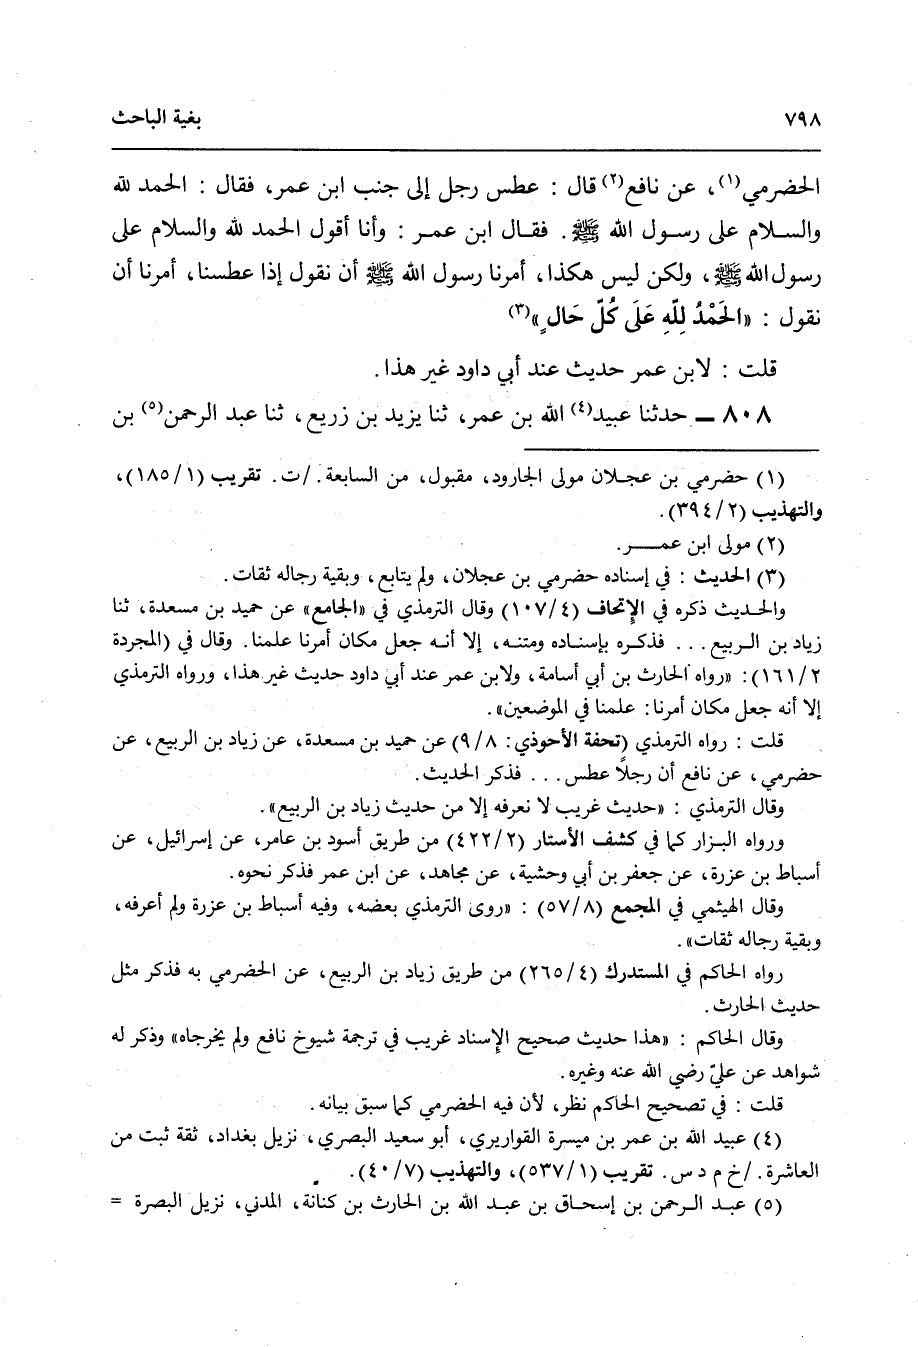 ٧٩٨ بغية الباحث
الحضرمي(١)، عن نافع(٢) قال : عطس رجل إلى جنب ابن عمر، فقال : الحمد لله
والسـلام على رسـول الله ﷺ. فقـال ابن عمـر : وأنا أقول الحمد لله والسلام على
رسول الله ﷺ، ولكن ليس هكذا، أمرنا رسول الله ﷺ أن نقول إذا عطسنا، أمرنا أن
نقول : «الحَمْدُ لِلّهِ عَلَى كُلِّ حَالٍ»(٣)
قلت : لابن عمر حديث عند أبي داود غير هذا.
٨٠٨ ــ حدثنا عبيد(٤) الله بن عمر، ثنا يزيد بن زريع، ثنا عبد الرحمن(٥) بن
(١) حضرمي بن عجـلان مولى الجارود، مقبول، من السابعة. /ت. تقريب (١/١٨٥)،
والتهذيب (٢/٣٩٤).
(٢) مولى ابن عمـــر.
(٣) الحديث : في إسناده حضرمي بن عجلان، ولم يتابع، وبقية رجاله ثقات.
والحـديث ذكره في الإتحاف (٤/١٠٧) وقال الترمذي في «الجامع» عن حميد بن مسعدة، ثنا
زياد بن الـربيع... فذكـره بإسنـاده ومتنـه، إلا أنـه جعل مكان أمرنا علمنا. وقال في (المجردة
٢/١٦١): «رواه الحارث بن أبي أسامة، ولابن عمر عند أبي داود حديث غير هذا، ورواه الترمذي
إلا أنه جعل مكان أمرنا: علمنا في الموضعين».
قلت : رواه الترمذي (تحفة الأحوذي: ٩/٨) عن حميد بن مسعدة، عن زياد بن الربيع، عن
حضرمي، عن نافع أن رجلاً عطس... فذكر الحديث.
وقال الترمذي : «حديث غريب لا نعرفه إلا من حديث زياد بن الربيع».
ورواه البـزار كما في كشف الأستار (٢/٤٢٢) من طريق أسود بن عامر، عن إسرائيل، عن
أسباط بن عزرة، عن جعفر بن أبي وحشية، عن مجاهد، عن ابن عمر فذكر نحوه.
وقال الهيثمي في المجمع (٨/٥٧) : «روى الترمذي بعضه، وفيه أسباط بن عزرة ولم أعرفه،
وبقية رجاله ثقات».
رواه الحاكم في المستدرك (٤/٢٦٥) من طريق زياد بن الربيع، عن الحضرمي به فذكر مثل
حديث الحارث.
وقال الحاكم : «هذا حديث صحيح الإسناد غريب في ترجمة شيوخ نافع ولم يخرجاه» وذكر له
شواهد عن عليّ رضي الله عنه وغيره.
قلت : في تصحيح الحاكم نظر، لأن فيه الحضرمي كما سبق بيانه.
(٤) عبيد الله بن عمر بن ميسرة القواريري، أبو سعيد البصري، نزيل بغداد، ثقة ثبت من
العاشرة. /خ م د س. تقريب (١/٥٣٧)، والتهذيب (٧/٤٠).
(٥) عبـد الـرحمن بن إسحـاق بن عبـد الله بن الحارث بن كنانة، المدني، نزيل البصرة =